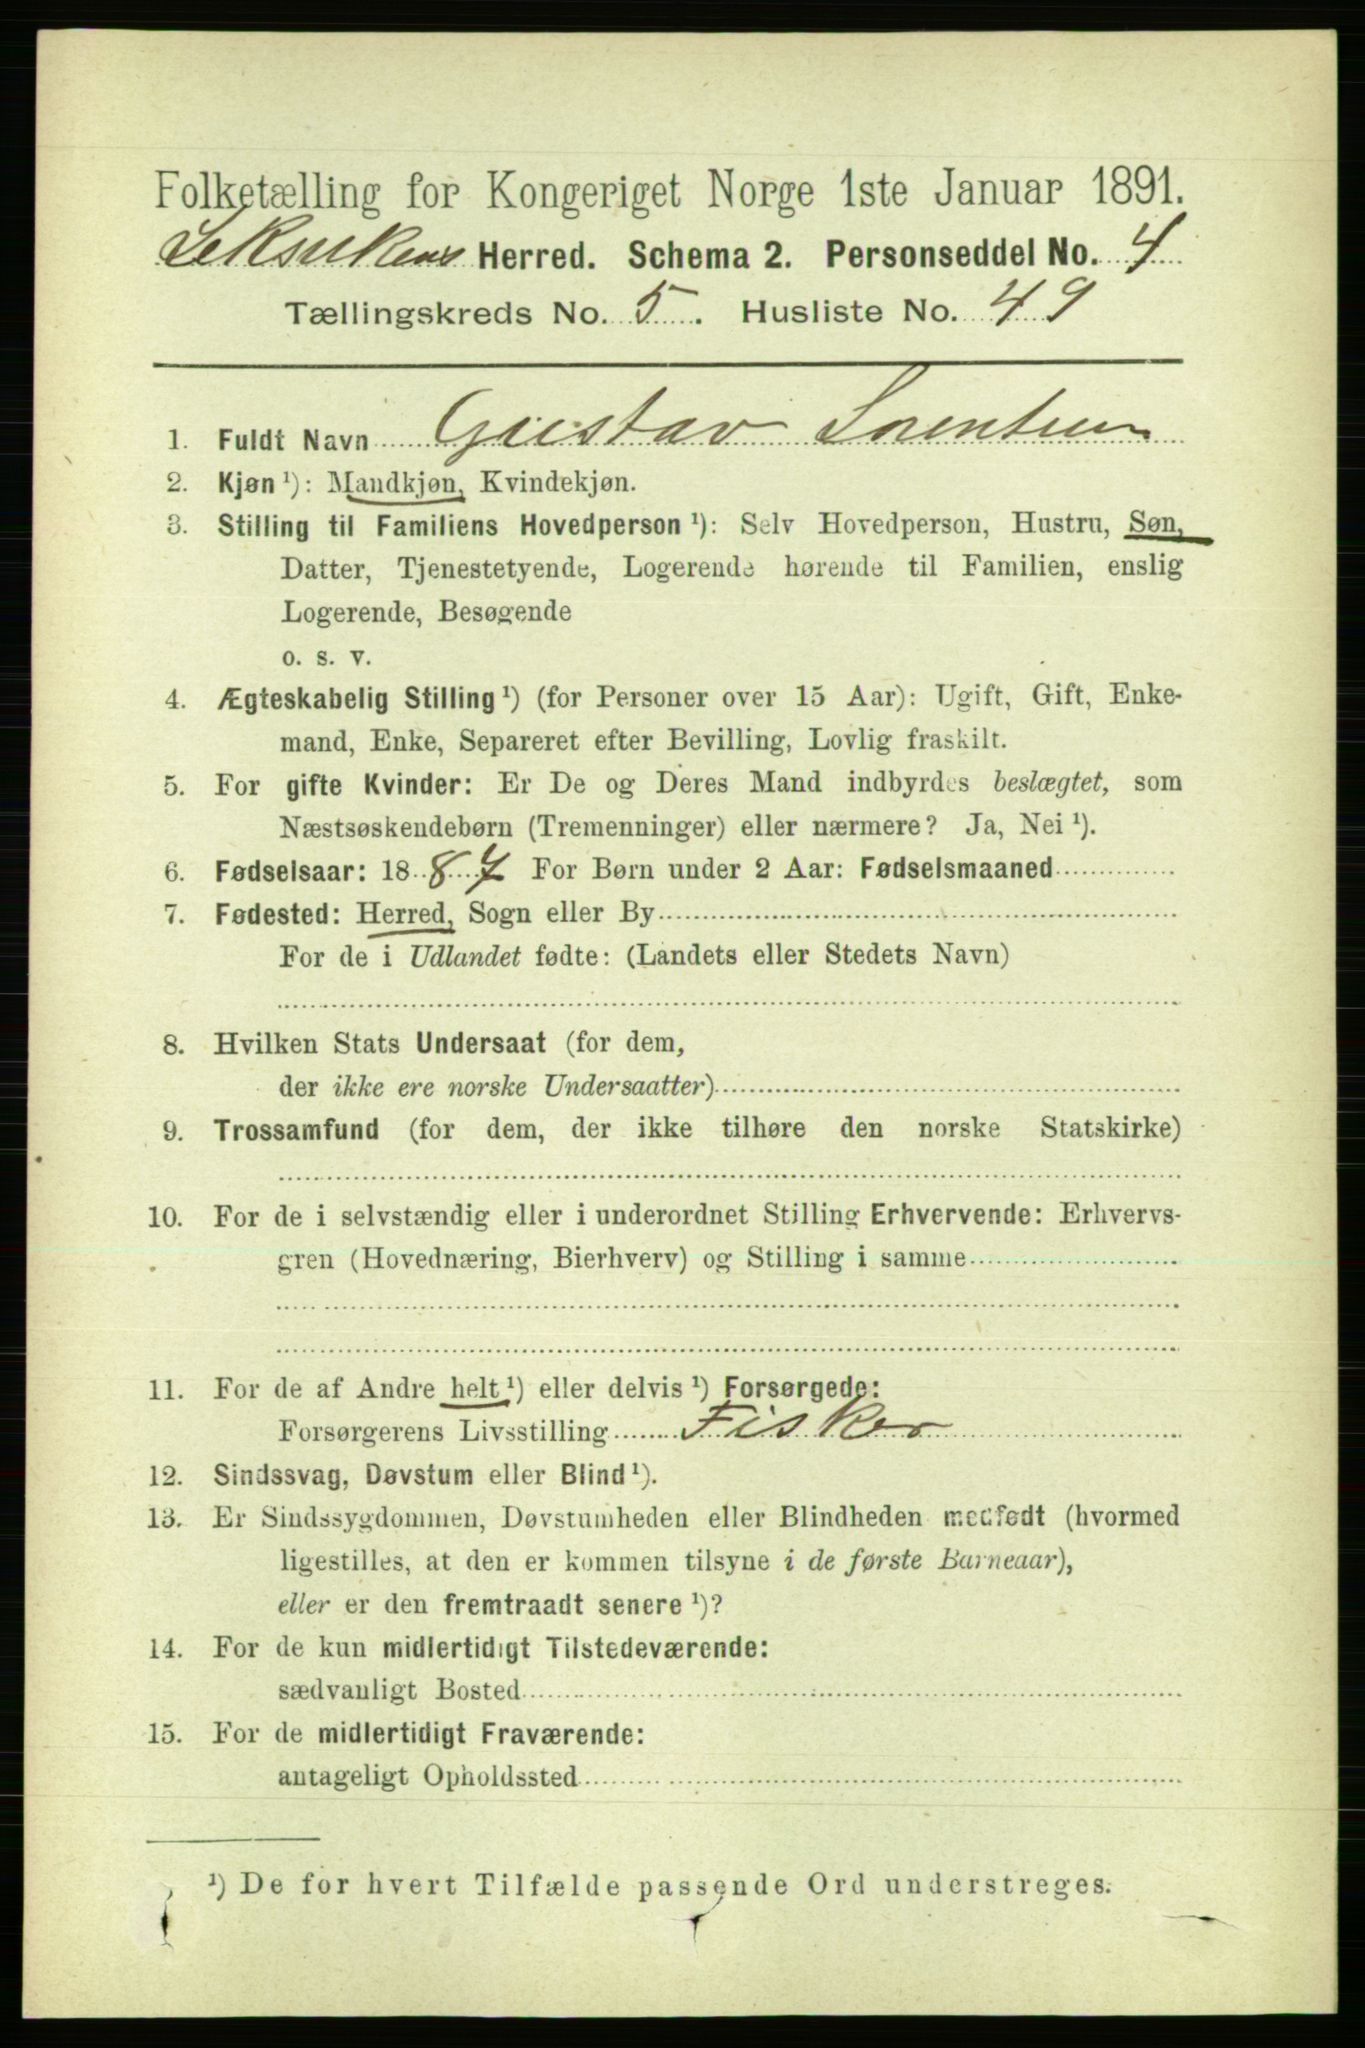 Folketælling for Kongeriget Norge 1ste Januar 1891.
Herred. Schema 2. Personseddel No. 4
Tællingskreds No. 5. Husliste No. 49
1. Fuldt Navn Gustav
2. Kjøn ¹): Mandkjøn, Kvindekjøn.
3. Stilling til Familiens Hovedperson ¹): Selv Hovedperson, Hustru, Søn,
Datter, Tjenestetyende, Logerende hørende til Familien, enslig
Logerende, Besøgende
o. s. v.
4. Ægteskabelig Stilling ¹) (for Personer over 15 Aar): Ugift, Gift, Enke-
mand, Enke, Separeret efter Bevilling, Lovlig fraskilt.
5. For gifte Kvinder: Er De og Deres Mand indbyrdes beslægtet, som
Næstsøskendebørn (Tremenninger) eller nærmere? Ja, Nei ¹).
6. Fødselsaar: 1887 For Børn under 2 Aar: Fødselsmaaned
7. Fødested: Herred, Sogn eller By
For de i Udlandet fødte: (Landets eller Stedets Navn)
8. Hvilken Stats Undersaat (for dem,
der ikke ere norske Undersaatter)
9. Trossamfund (for dem, der ikke tilhøre den norske Statskirke)
10. For de i selvstændig eller i underordnet Stilling Erhvervende: Erhvervs-
gren (Hovednæring, Bierhverv) og Stilling i samme
11. For de af Andre helt ¹) eller delvis ¹) Forsørgede:
Forsørgerens Livsstilling Fisker
12. Sindssvag, Døvstum eller Blind ¹).
13. Er Sindssygdommen, Døvstumheden eller Blindheden medfødt (hvormed
ligestilles, at den er kommen tilsyne i de første Barneaar),
eller er den fremtraadt senere ¹)?
14. For de kun midlertidigt Tilstedeværende:
sædvanligt Bosted
15. For de midlertidigt Fraværende:
antageligt Opholdssted
¹) De for hvert Tilfælde passende Ord understreges.